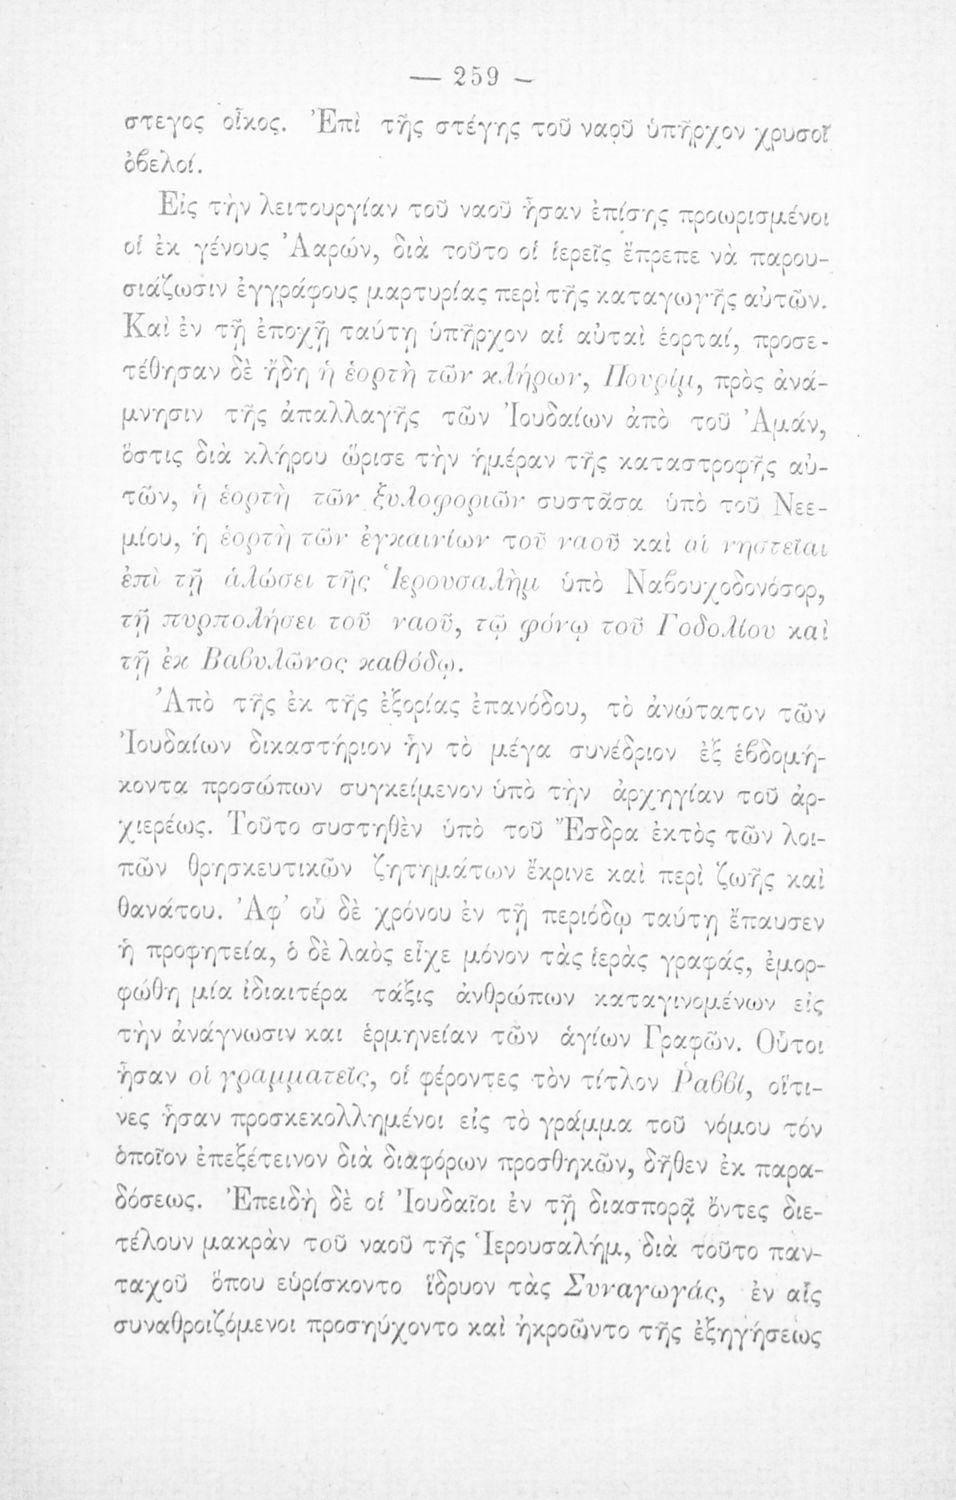 — 259 —
στεγος οἶκος. Ἐπὶ τῆς στέγης τοῦ ναοῦ ὑπῆρχον χρυσοῖ
ὀβελοί.
Εἰς τὴν λειτουργίαν τοῦ ναοῦ ἦσαν ἐπίσης προωρισμένοι
οἱ ἐκ γένους Ἀαρών, διὰ τοῦτο οἱ ἱερεῖς ἔπρεπε νὰ παρου-
σιάζωσιν ἐγγράφους μαρτυρίας περὶ τῆς καταγωγῆς αὐτῶν.
Καὶ ἐν τῇ ἐποχῇ ταύτῃ ὑπῆρχον αἱ αὐταὶ ἑορταί, προσε-
τέθησαν δὲ ἤδη ἡ ἑορτὴ τῶν κλήρων, Πουρίμ, πρὸς ἀνά-
μνησιν τῆς ἀπαλλαγῆς τῶν Ἰουδαίων ἀπὸ τοῦ Ἀμάν,
ὅστις διὰ κλήρου ὥρισε τὴν ἡμέραν τῆς καταστροφῆς αὐ-
τῶν, ἡ ἑορτὴ τῶν ξυλοφοριῶν συστᾶσα ὑπὸ τοῦ Νεε-
μίου, ἡ ἑορτὴ τῶν ἐγκαινίων τοῦ ναοῦ καὶ αἱ νηστεῖαι
ἐπὶ τῇ ἁλώσει τῆς Ἱερουσαλὴμ ὑπὸ Ναβουχοδονόσορ,
τῇ πυρπολήσει τοῦ ναοῦ, τῷ φόνῳ τοῦ Γοδολίου καὶ
τῇ ἐκ Βαβυλῶνος καθόδῳ.
Ἀπὸ τῆς ἐκ τῆς ἐξορίας ἐπανόδου, τὸ ἀνώτατον τῶν
Ἰουδαίων δικαστήριον ἦν τὸ μέγα συνέδριον ἐξ ἑβδομή-
κοντα προσώπων συγκείμενον ὑπὸ τὴν ἀρχηγίαν τοῦ ἀρ-
χιερέως. Τοῦτο συστηθὲν ὑπὸ τοῦ Ἔσδρα ἐκτὸς τῶν λοι-
πῶν θρησκευτικῶν ζητημάτων ἔκρινε καὶ περὶ ζωῆς καὶ
θανάτου. Ἀφ’ οὗ δὲ χρόνου ἐν τῇ περιόδῳ ταύτῃ ἔπαυσεν
ἡ προφητεία, ὁ δὲ λαὸς εἶχε μόνον τὰς ἱερὰς γραφάς, ἐμορ-
φώθη μία ἰδιαιτέρα τάξις ἀνθρώπων καταγινομένων εἰς
τὴν ἀνάγνωσιν και ἑρμηνείαν τῶν ἁγίων Γραφῶν. Οὗτοι
ἦσαν οἱ γραμματεῖς, οἱ φέροντες τὸν τίτλον Ῥαββί, οἵτι-
νες ἦσαν προσκεκολλημένοι εἰς τὸ γράμμα τοῦ νόμου τόν
ὁποῖον ἐπεξέτεινον διὰ διαφόρων προσθηκῶν, δῆθεν ἐκ παρα-
δόσεως. Ἐπειδὴ δὲ οἱ Ἰουδαῖοι ἐν τῇ διασπορᾷ ὄντες διε-
τέλουν μακρὰν τοῦ ναοῦ τῆς Ἱερουσαλήμ, διὰ τοῦτο παν-
ταχοῦ ὅπου εὑρίσκοντο ἵδρυον τὰς Συναγωγάς, ἐν αἷς
συναθροιζόμενοι προσηύχοντο καὶ ἠκροῶντο τῆς ἐξηγήσεως